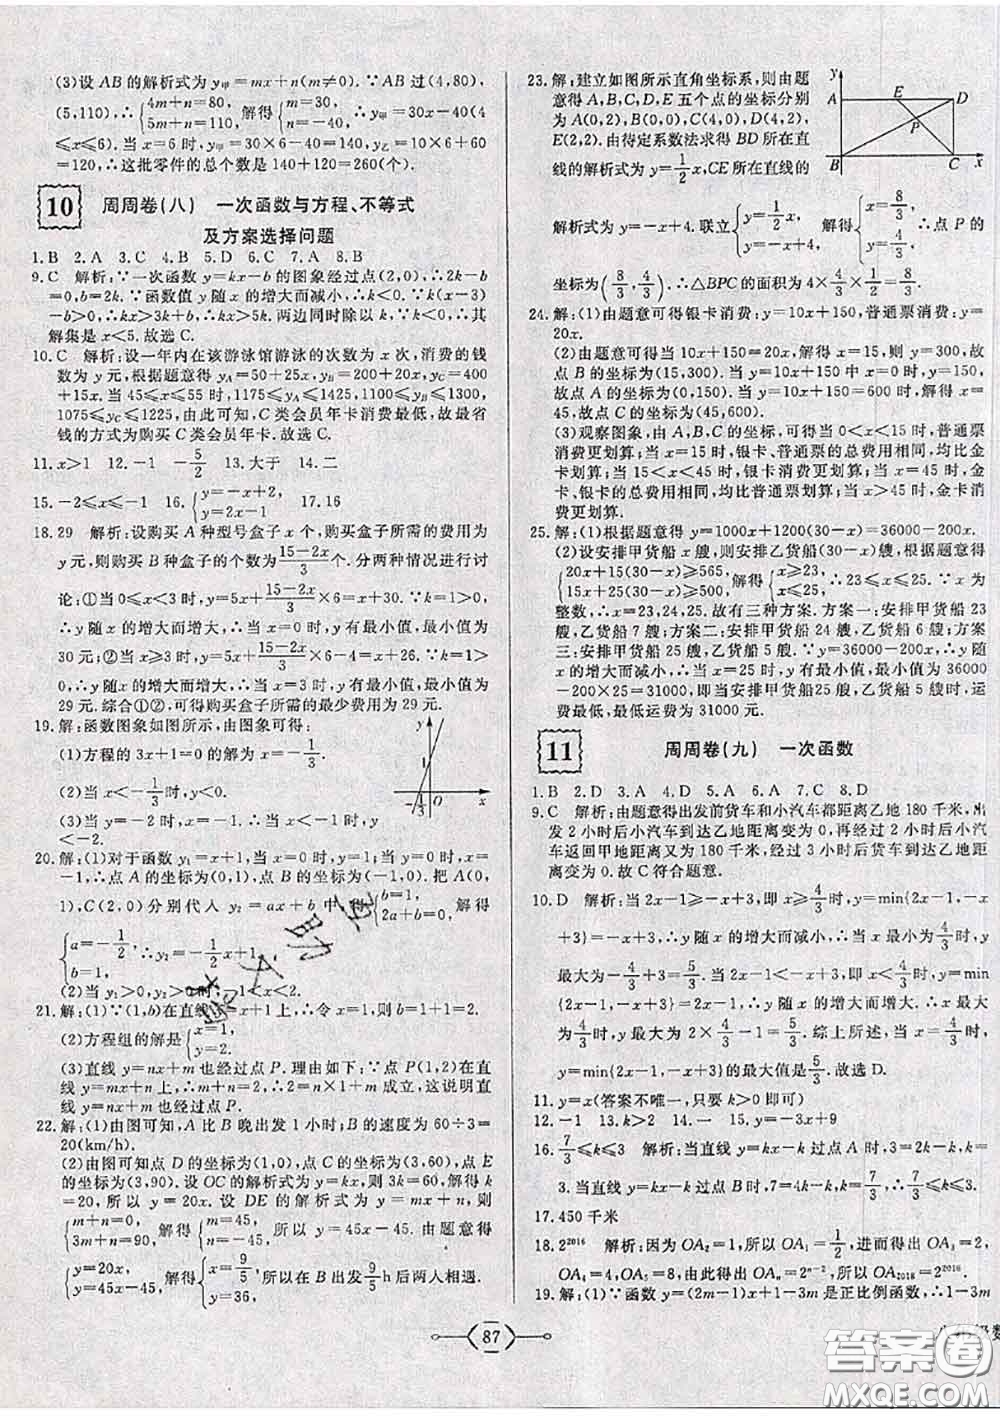 (3)设 AB 的解析式为 y甲=mx+n(m≠0).∵AB 过(4,80),
(5,110),∴{4m+n=80, 5m+n=110, 解得{m=30, n=-40, ∴y甲=30x-40(4
≤x≤6). 当 x=6 时,y甲=30×6-40=140,y乙=10×6+60
=120,∴这批零件的总个数是 140+120=260(个).
10 周周卷(八) 一次函数与方程、不等式
及方案选择问题
1.B 2.A 3.C 4.B 5.D 6.C 7.A 8.B
9.C 解析:∵一次函数 y=kx-b 的图象经过点(2,0),∴2k-b
=0,b=2k.∵函数值 y 随 x 的增大而减小,∴k<0.∵k(x-3)
-b>0,∴kx>3k+b,∴kx>5k. 两边同时除以 k,∵k<0,∴其
解集是 x<5.故选 C.
10.C 解析:设一年内在该游泳馆游泳的次数为 x 次,消费的钱
数为 y 元,根据题意得 yA=50+25x,yB=200+20x,yC=400
+15x. 当 45≤x≤55 时,1175≤yA≤1425,1100≤yB≤1300,
1075≤yC≤1225,由此可知,C 类会员年卡消费最低,故最省
钱的方式为购买 C 类会员年卡.故选 C.
11.x>1 12.-1 -5/2 13.大于 14.二
15.-2≤x≤-1 16.{y=-x+2, y=2x-1 17.16
18.29 解析:设购买 A 种型号盒子 x 个,购买盒子所需的费用为
y 元,则购买 B 种盒子的个数为(15-2x)/3.分两种情况进行讨
论:①当 0≤x<3 时,y=5x+(15-2x)/3×6=x+30.∵k=1>0,
∴y 随 x 的增大而增大,∴当 x=0 时,y 有最小值,最小值为
30 元;②当 x≥3 时,y=5x+(15-2x)/3×6-4=x+26.∵k=1>
0,∴y 随 x 的增大而增大,∴当 x=3 时,y 有最小值,最小值为
29 元. 综合①②,可得购买盒子所需的最少费用为 29 元.
19.解:函数图象如图所示,由图象可得:
(1)方程的 3x+1=0 的解为 x=-1/3.
(2)当 x<-1/3 时,y<0.
(3)当 y=-5 时,x=-2,∴当 y<-5 时,x
<-2.
y
1
-1/3 O x
20.解:(1)对于函数 y₁=x+1,当 x=0 时,y=1;当 y=0 时,x=
-1,∴A 点的坐标为(0,1),B 点的坐标为(-1,0).把 A(0,
1),C(2,0)分别代人 y₂=ax+b 中得{b=1, 2a+b=0, 解得
{a=-1/2, b=1, ∴y₂=-1/2x+1.
(2)当 y₁>0,y₂>0 时,-1<x<2.
21.解:(1)∵(1,b)在直线 y=x+1 上,∴令 x=1,则 b=1+1=2.
(2)方程组的解是{x=1, y=2.
(3)直线 y=nx+m 也经过点 P. 理由如下:∵点 P(1,2)在直
线 y=mx+n 上,∴m+n=2,∴2=n×1+m 成立,这说明直
线 y=nx+m 也经过点 P.
22.解:(1)由图可知,A 比 B 晚出发 1 小时;B 的速度为 60÷3=
20(km/h).
(2)由图可知点 D 的坐标为(1,0),点 C 的坐标为(3,60),点 E
的坐标为(3,90). 设 OC 的解析式为 y=kx,则 3k=60,解得 k
=20,所以 y=20x. 设 DE 的解析式为 y=mx+n,则
{m+n=0, 3m+n=90, 解得{m=45, n=-45, 所以 y=45x-45. 由题意得
{y=20x, y=45x-45, 解得{x=9/5, y=36, 所以在 B 出发 9/5 h 后两人相遇.
23.解:建立如图所示直角坐标系,则由题
意得 A,B,C,D,E 五个点的坐标分别
为 A(0,2),B(0,0),C(4,0),D(4,2),
E(2,2).由待定系数法求得 BD 所在直
线的解析式为 y=1/2x,CE 所在直线的
y
A E D
P
B C x
解析式为 y=-x+4. 联立{y=1/2x, y=-x+4, 解得{x=8/3, y=4/3. ∴点 P 的
坐标为(8/3,4/3),∴△BPC 的面积为 4×4/3×1/2=8/3.
24.解:(1)由题意可得银卡消费:y=10x+150,普通票消费:y=
20x.
(2)由题意可得当 10x+150=20x,解得 x=15,则 y=300,故
点 B 的坐标为(15,300).当 y=10x+150 中 x=0 时,y=150,
故点 A 的坐标为(0,150).当 y=10x+150=600,解得 x=45,
故点 C 的坐标为(45,600).
(3)观察图象,由 A,B,C 的坐标,可得当 0<x<15 时,普通票
消费更划算;当 x=15 时,银卡、普通票的总费用相同,均比金
卡划算;当 15<x<45 时,银卡消费更划算;当 x=45 时,金卡、
银卡的总费用相同,均比普通票划算;当 x>45 时,金卡消费更
划算.
25.解:(1)根据题意得 y=1000x+1200(30-x)=36000-200x.
(2)设安排甲货船 x 艘,则安排乙货船(30-x)艘,根据题意得
{20x+15(30-x)≥565, 15x+25(30-x)≥500, 解得{x≥23, x≤25, ∴23≤x≤25.∵x 为
整数,∴x=23,24,25.故有三种方案. 方案一:安排甲货船
23 艘,乙货船 7 艘;方案二:安排甲货船 24 艘,乙货船 6 艘;方案
三:安排甲货船 25 艘,乙货船 5 艘.∵y=36000-200x,∴y 随
x 的增大而减小,∴当 x=25 时,y 有最小值,最小值为 36000
-200×25=31000,即当安排甲货船 25 艘,乙货船 5 艘时,运
费最低,最低运费为 31000 元.
11 周周卷(九) 一次函数
1.B 2.D 3.A 4.D 5.A 6.A 7.C 8.D
9.C 解析:由题意得出发前货车和小汽车都距离乙地 180 千米,出
发 2 小时后小汽车到达乙地距离变为 0,再经过 2 小时小汽
车返回甲地距离又为 180 千米,经过 3 小时后货车到达乙地距
离变为 0.故 C 符合题意.
10.D 解析:当 2x-1≥-x+3,x≥4/3时,y=min{2x-1,-x
+3}=-x+3,∴y 随 x 的增大而减小,∴当 x 最小为4/3时,y
最大为-4/3+3=5/3;当 2x-1<-x+3,即 x<4/3时,y=min
{2x-1,-x+3}=2x-1,∴y 随 x 的增大而增大.∴x 最大
为4/3时,y 最大为 2×4/3-1=5/3. 综上所述,当 x=4/3时,
y=min{2x-1,-x+3}的最大值是5/3.故选 D.
11.y=x(答案不唯一,只要 k>0 即可)
12.-1 13.k>2 14.-1 15.y=-3x+9
16.7/3≤k≤3 解析:当直线 y=kx-k 过点 A 时,3=2k-k,k=
3.当直线 y=kx-k 过点 B 时,7=4k-k,k=7/3,∴7/3≤k≤3.
17.450 千米
18.2²⁰¹⁶ 解析:因为 OA₂=1,所以 OA₁=1/2,进而得出 OA₃=2,
OA₄=4,OA₅=8,由此得出 OAₙ=2ⁿ⁻²,所以 OA₂₀₁₈=2²⁰¹⁶.
19.解:(1)∵函数 y=(2m-1)x+1-3m 是正比例函数,∴1-3m
87
答案圈
MXQE.COM